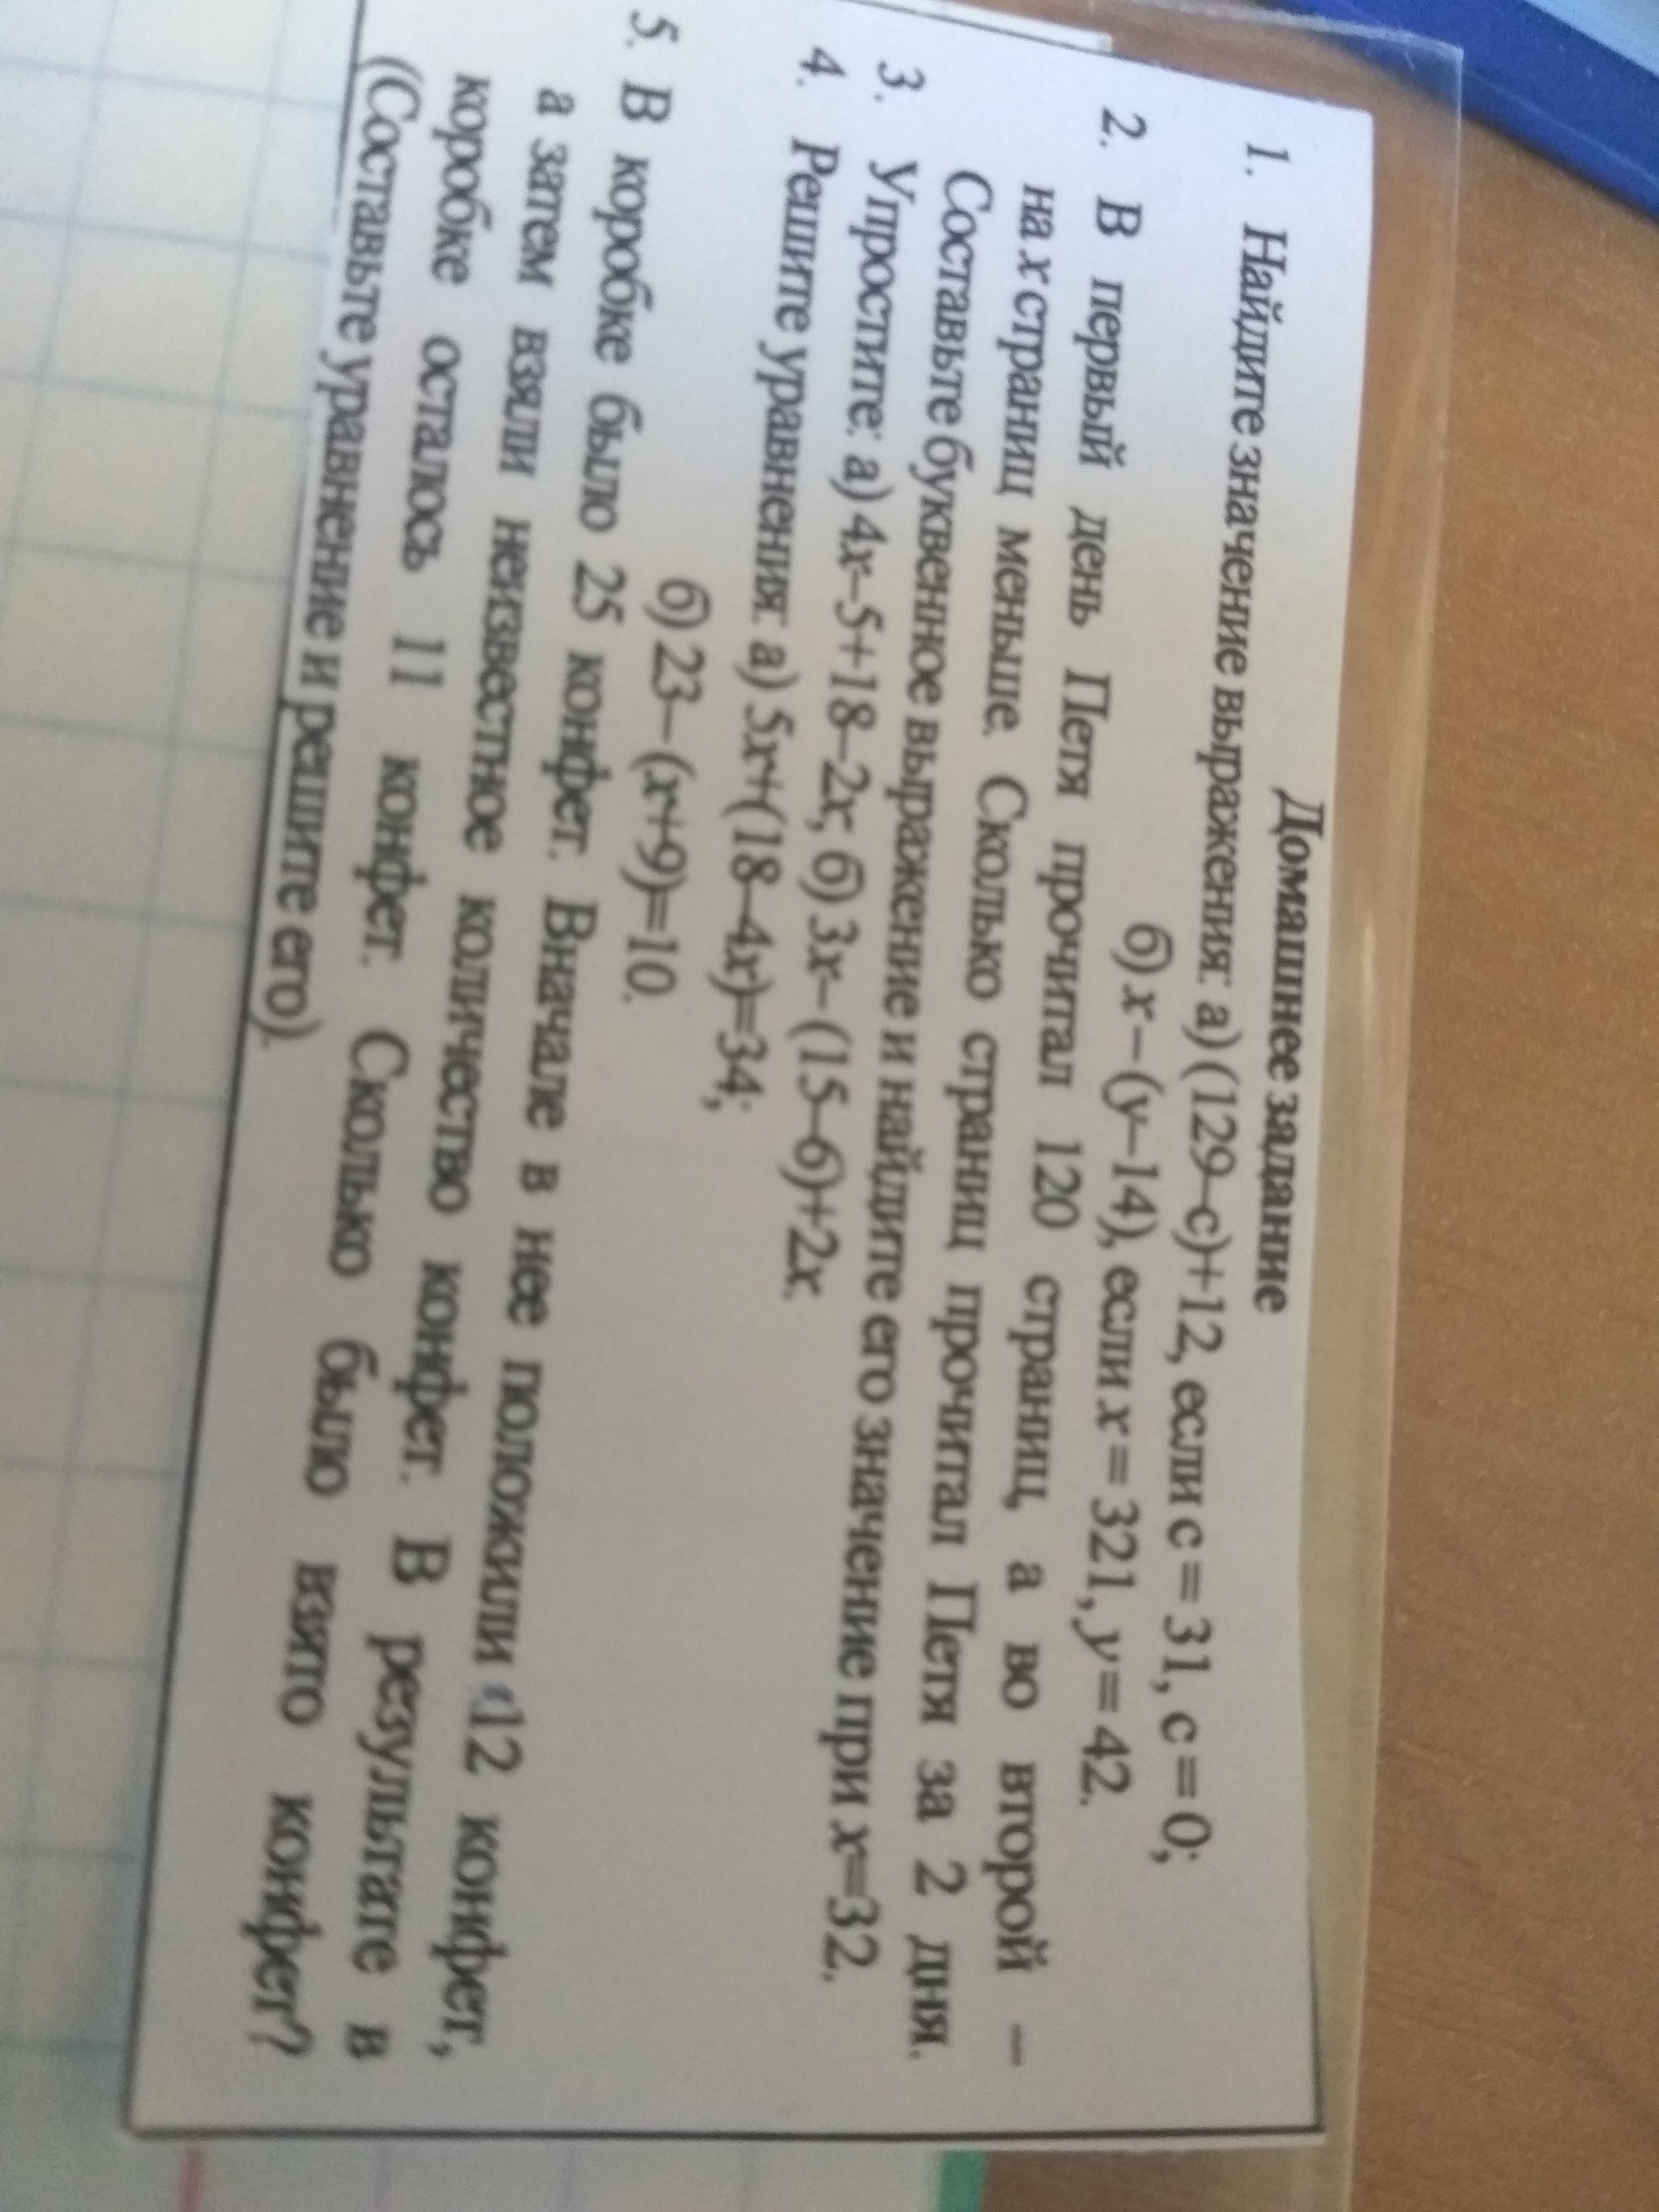 Домашнее задание
1. Найдите значение выражения: а) (129–с)+12, если с = 31, с = 0;
б) х – (у–14), если х = 321, у = 42.
2. В первый день Петя прочитал 120 страниц, а во второй –
на х страниц меньше. Сколько страниц прочитал Петя за 2 дня.
Составьте буквенное выражение и найдите его значение при х=32.
3. Упростите: а) 4х–5+18–2х; б) 3х – (15–6)+2х.
4. Решите уравнения: а) 5х+(18–4х)=34;
б) 23 – (х+9)=10.
5. В коробке было 25 конфет. Вначале в нее положили 12 конфет,
а затем взяли неизвестное количество конфет. В результате в
коробке осталось 11 конфет. Сколько было взято конфет?
(Составьте уравнение и решите его).